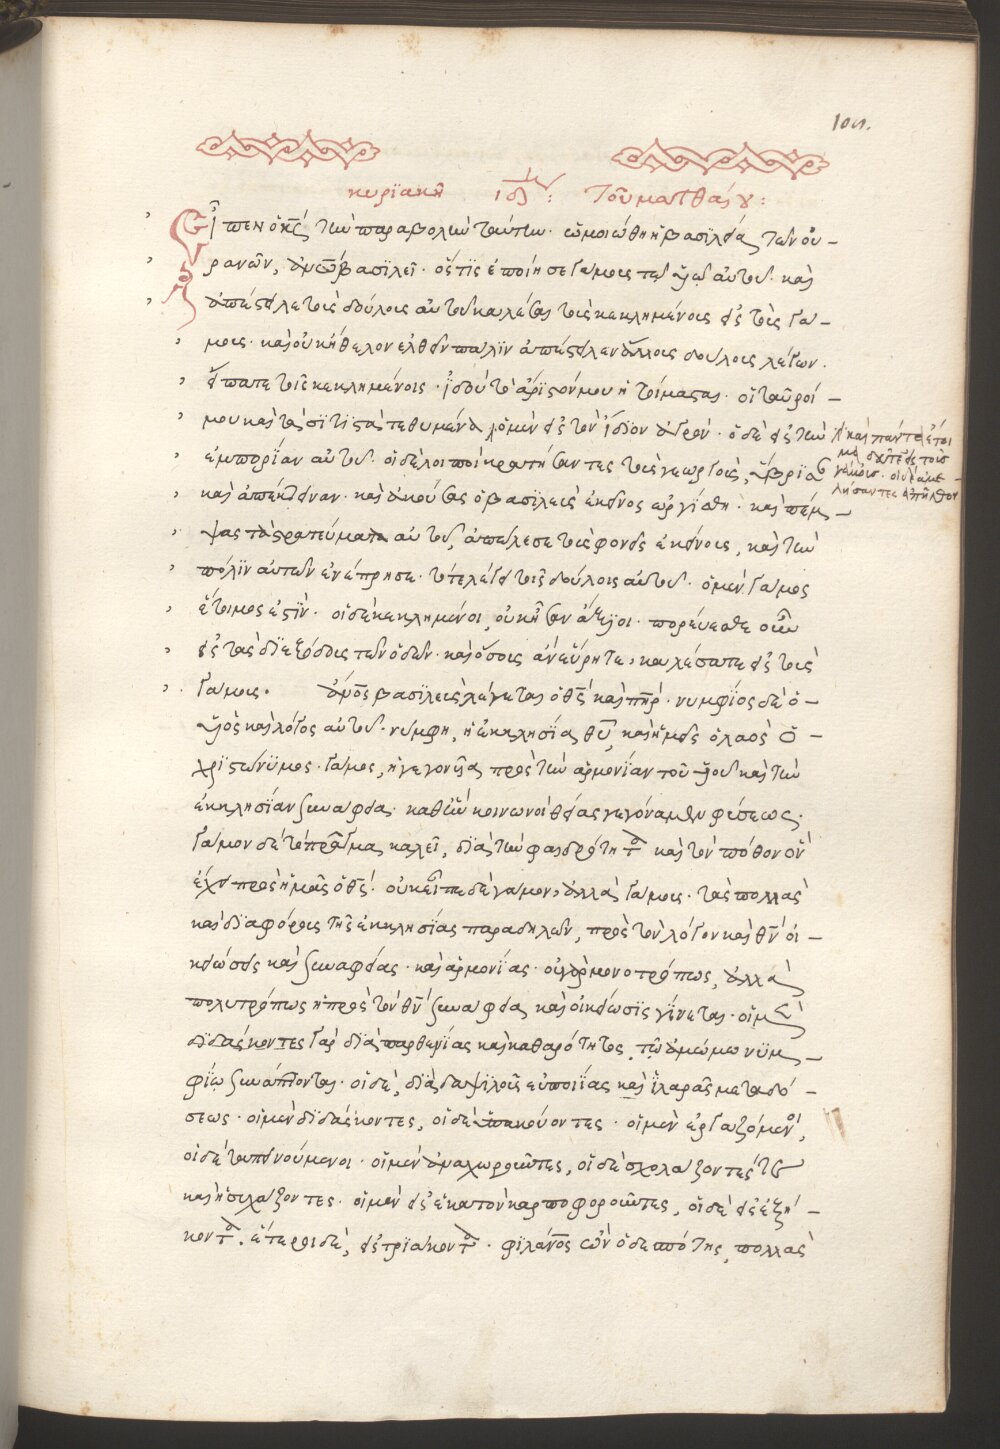 κυρϊακῆ ιδ: τοῦ ματθαίου:
Εἶπεν ὁ κς τὴν παραβολὴν ταύτην· ὡμοιώθη ἡ βασϊλεία τῶν οὐ-
ρανῶν, ἀνω βασϊλεῖ· ὅστϊς ἐποίησε γάμους τῷ υἱῷ αὐτοῦ· καὶ
ἀπέστειλε τοὺς δούλους αὐτοῦ καλέσαι τοὺς κεκλημένους εἰς τοὺς γά-
μους· καὶ οὐκ ἤθελον ἐλθεῖν πάλϊν ἀπέστειλεν ἄλλους δούλους λέγων·
εἴπατε τοῖς κεκλημένοις· ἰδοὺ τὸ ἄρϊστόν μου ἡτοίμασα· οἱ ταῦροί
μου καὶ τὰ σϊτϊστὰ τεθυμένα ὁ μὲν εἰς τὸν ἴδϊον ἀγρόν· ὁ δὲ εἰς τὴν
καὶ πάντα ἕτοι
μα δεῦτε εἰς τοὺς
γάμους· οἱ δὲ ἀμε-
λήσαντες ἀπῆλθον
ἐμπορίαν αὐτοῦ· οἱ δὲ λοιποὶ κρατήσαντες τοὺς γεωργοὺς, ὕβρϊσαν
καὶ ἀπέκτειναν· καὶ ἀκούσας ὁ βασϊλεὺς ἐκεῖνος ὠργίσθη· καὶ πέμ-
ψας τὰ στρατεύματα αὐτοῦ, ἀπώλεσε τοὺς φονεῖς ἐκείνους, καὶ τὴν
πόλϊν αὐτῶν ἐνέπρησε· τότε λέγει τοῖς δούλοις αὐτοῦ· ὁ μὲν γάμος
ἕτοιμος ἐστϊν· οἱ δὲ κεκλημένοι, οὐκ ἦσαν ἄξϊοι· πορεύεσθε οὖν
εἰς τὰς δϊεξόδους τῶν ὁδῶν· καὶ ὅσους ἂν εὕρητε, καλέσατε εἰς τοὺς
γάμους· ἄνος βασϊλεὺς λέγεται ὁ θς καὶ πηρ· νυμφϊος δὲ ὁ
υἱὸς καὶ λόγος αὐτοῦ· νύμφη, ἡ ἐκκλησία θυ, καὶ ἡμεῖς ὁ λαὸς ὁ
χρϊστώνϋμος· γάμος, ἡ γεγονυῖα πρὸς τὴν ἁρμονίαν τοῦ υἱοῦ καὶ τὴν
ἐκκλησϊαν συνάφεια· καθ' ἣν κοινωνοὶ θείας γεγόναμεν φύσεως·
γάμον δὲ τὸ πρᾶγμα καλεῖ, δϊὰ τὴν φαιδρότητα καὶ τὸν πόθον ὃν
ἔχει πρὸς ἡμᾶς ὁ θς· οὐκ εἶπε δὲ γάμον, ἀλλὰ γάμους· τὰς πολλὰς
καὶ δϊαφόρους τῆς ἐκκλησίας παραδηλῶν, πρὸς τὸν λόγον καὶ θν οἰ-
κειώσεις καὶ συναφείας· καὶ ἁρμονίας· οὐ γὰρ μονοτρόπως, ἀλλὰ
πολυτρόπως ἡ πρὸς τὸν θν συνάφεια καὶ οἰκείωσϊς γίνεται· οἱ μὲν
γὰρ δϊὰ παρθενίας καὶ καθαρότητος, τῷ ἀμώμῳ νϋμ-
φϊῳ συνάπτονται· οἱ δὲ, δϊὰ δαψϊλοῦς εὐποιΐας καὶ ἱλαρᾶς μεταδό-
σεως· οἱ μὲν δϊδάσκοντες, οἱ δὲ ὑπακούοντες· οἱ μὲν ἐργαζόμενοι,
οἱ δὲ ταπεινούμενοι· οἱ μὲν ἀναχωροῦντες, οἱ δὲ σχολάζοντές τε
καὶ ἡσυχάζοντες· οἱ μὲν εἰς ἑκατὸν καρποφοροῦντες, οἱ δὲ εἰς ἑξή-
κοντα· ἕτεροι δὲ, εἰς τρϊάκοντα· φϊλάνος ὢν ὁ δεσπότης, πολλὰς